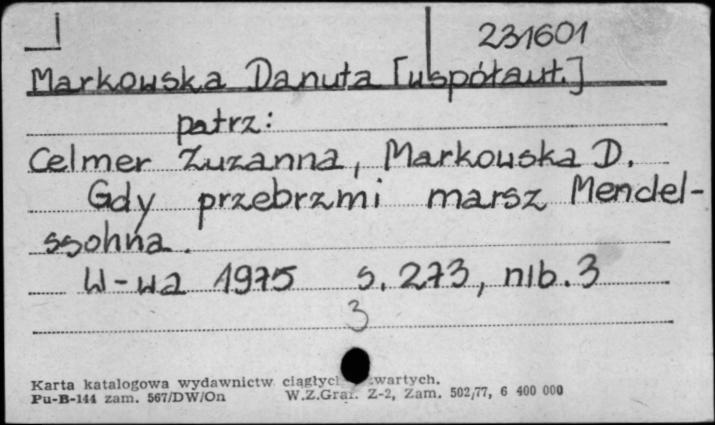 231601
Markowska Danuta [współaut.]
patrz:
Celmer Zuzanna, Markowska D.
Gdy przebrzmi marsz Mendel-
ssohna.
W-wa 1975 s. 273, nlb. 3
3
Karta katalogowa wydawnictw
Pu-B-144 zam. 567/DW/On W.Z.Graf. Z-2, Zam. 502/77, 6 400 000